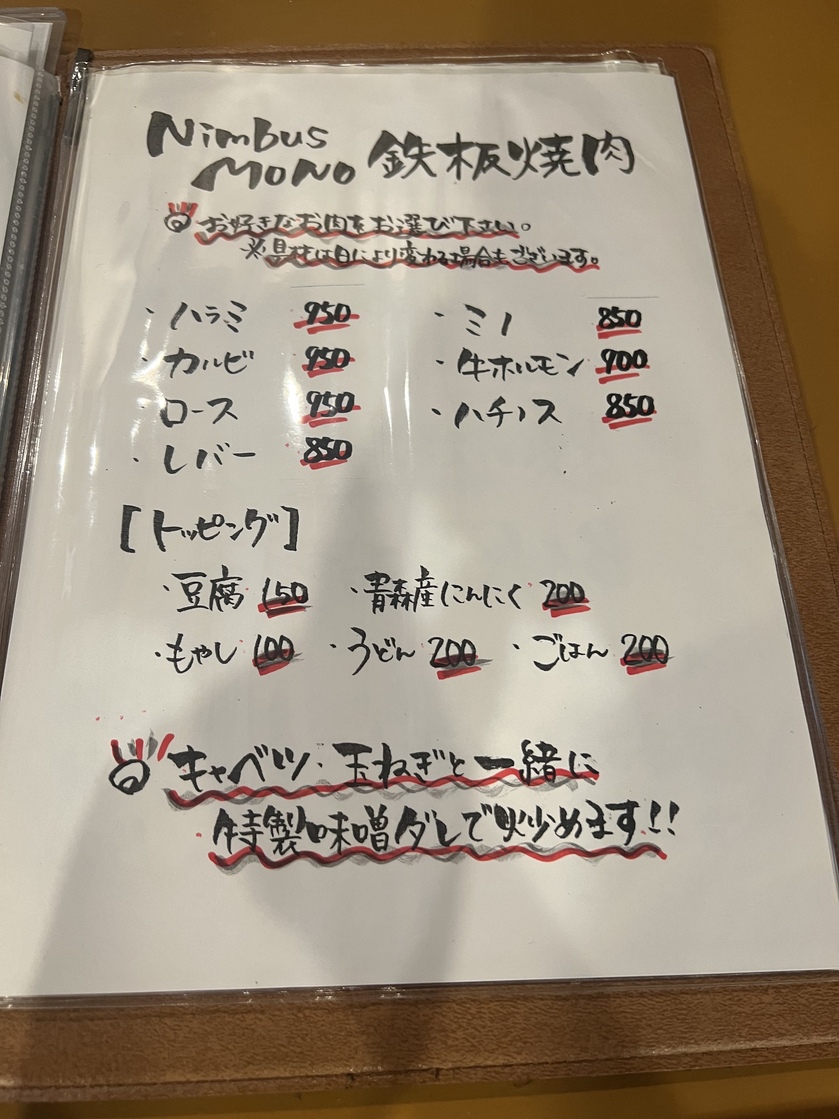 Nimbus
MONO 鉄板焼肉
お好きなお肉をお選び下さい。
※具材は日により変わる場合もございます。
・ハラミ 950 ・ミノ 850
・カルビ 950 ・牛ホルモン 900
・ロース 950 ・ハチノス 850
・レバー 850
[トッピング]
・豆腐 150 ・青森産にんにく 200
・もやし 100 ・うどん 200 ・ごはん 200
キャベツ・玉ねぎと一緒に
特製味噌ダレで炒めます!!